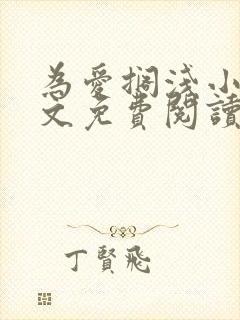 為愛擱淺小
文免費閱讀
丁賢飛